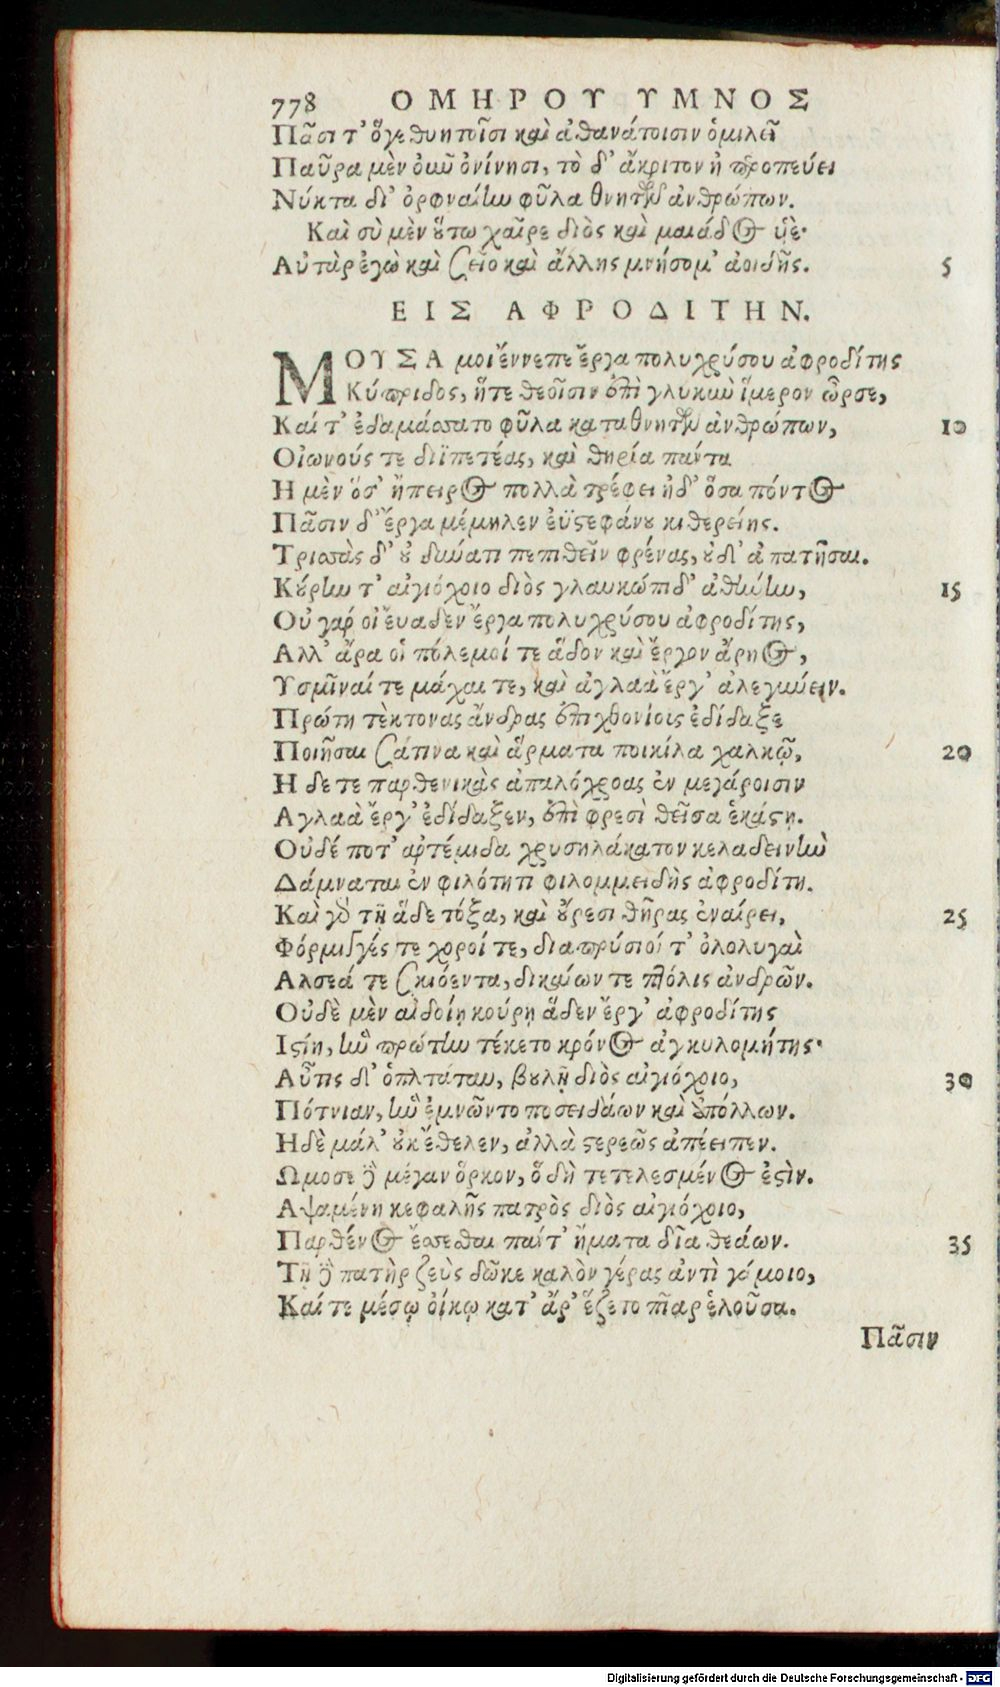 778 ΟΜΗΡΟΥ ΥΜΝΟΣ
Πᾶσι τ' ὅγε θνητοῖσι καὶ ἀθανάτοισιν ὁμιλεῖ
Παῦρα μὲν οὖν ὀνίνησι, τὸ δ' ἄκριτον ἠπροπεύει
Νύκτα δι' ὀρφναίην φῦλα θνητῶν ἀνθρώπων.
Καὶ σὺ μὲν οὕτω χαῖρε διὸς καὶ μαιάδος ὑέ·
Αὐτὰρ ἐγὼ καὶ σεῖο καὶ ἄλλης μνήσομ' ἀοιδῆς. 5
ΕΙΣ ΑΦΡΟΔΙΤΗΝ.
ΜΟΥΣΑ μοι ἔννεπε ἔργα πολυχρύσου ἀφροδίτης
Κύπριδος, ἥτε θεοῖσιν ἐπὶ γλυκὺν ἵμερον ὦρσε,
Καί τ' ἐδαμάσσατο φῦλα καταθνητῶν ἀνθρώπων, 10
Οἰωνούς τε διϊπετέας, καὶ θηρία πάντα
Η μὲν ὅσ' ἤπειρος πολλὰ τρέφει ἠδ' ὅσα πόντος
Πᾶσιν δ' ἔργα μέμηλεν ἐϋστεφάνου κιθερείης.
Τρισσὰς δ' οὐ δύναται πεπιθεῖν φρένας, οὐδ' ἀπατῆσαι.
Κύρην τ' αἰγιόχοιο διὸς γλαυκώπιδ' ἀθήνην, 15
Οὐ γάρ οἱ εὔαδεν ἔργα πολυχρύσου ἀφροδίτης,
Αλλ' ἄρα οἱ πόλεμοί τε ἅδον καὶ ἔργον ἄρηος,
Υσμῖναί τε μάχαι τε, καὶ ἀγλαὰ ἔργ' ἀλεγύνειν.
Πρώτη τέκτονας ἄνδρας ἐπιχθονίοις ἐδίδαξε
Ποιῆσαι σάτινα καὶ ἅρματα ποικίλα χαλκῷ, 20
Η δέ τε παρθενικὰς ἁπαλόχροας ἐν μεγάροισιν
Αγλαὰ ἔργ' ἐδίδαξεν, ἐπὶ φρεσὶ θεῖσα ἑκάστῃ.
Οὐδέ ποτ' ἀρτέμιδα χρυσηλάκατον κελαδεινὴν
Δάμναται ἐν φιλότητι φιλομμειδὴς ἀφροδίτη.
Καὶ γὰρ τῇ ἅδε τόξα, καὶ οὔρεσι θῆρας ἐναίρει, 25
Φόρμιγγές τε χοροί τε, διαπρύσιοί τ' ὀλολυγαὶ
Αλσεά τε σκιόεντα, δικαίων τε πτόλις ἀνδρῶν.
Οὐδὲ μὲν αἰδοίῃ κούρῃ ἅδεν ἔργ' ἀφροδίτης
Ιστίῃ, ἣν πρώτην τέκετο κρόνος ἀγκυλομήτης·
Αὖτις δ' ὁπλτάτην, βουλῇ διὸς αἰγιόχοιο, 30
Πότνιαν, ἣν ἐμνῶντο ποσειδάων καὶ ἀπόλλων.
Ηδὲ μάλ' οὐκ ἔθελεν, ἀλλὰ στερεῶς ἀπέειπεν.
Ωμοσε δὲ μέγαν ὅρκον, ὃ δὴ τετελεσμένος ἐστίν.
Αψαμένη κεφαλῆς πατρὸς διὸς αἰγιόχοιο,
Παρθένος ἔσσεσθαι πάντ' ἤματα δῖα θεάων. 35
Τῇ δὲ πατὴρ ζεὺς δῶκε καλὸν γέρας ἀντὶ γάμοιο,
Καί τε μέσῳ οἴκῳ κατ' ἄρ' ἕζετο πῖαρ ἑλοῦσα.
Πᾶσιν
Digitalisierung gefördert durch die Deutsche Forschungsgemeinschaft - DFG